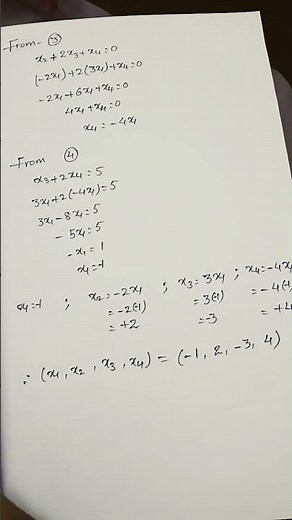 From - ③
x₂+2x₃+x₄=0
(-2x₁)+2(3x₁)+x₄=0
-2x₁+6x₁+x₄=0
4x₁+x₄=0
x₄=-4x₁
From ④
x₃+2x₄=5
3x₁+2(-4x₁)=5
3x₁-8x₁=5
-5x₁=5
-x₁=1
x₁=-1
x₁=-1 ; x₂=-2x₁ ; x₃=3x₁ ; x₄=-4x₁
=-2(-1) =3(-1) =-4(-1)
=+2 =-3 =+4
∴ (x₁,x₂,x₃,x₄) = (-1,2,-3,4)